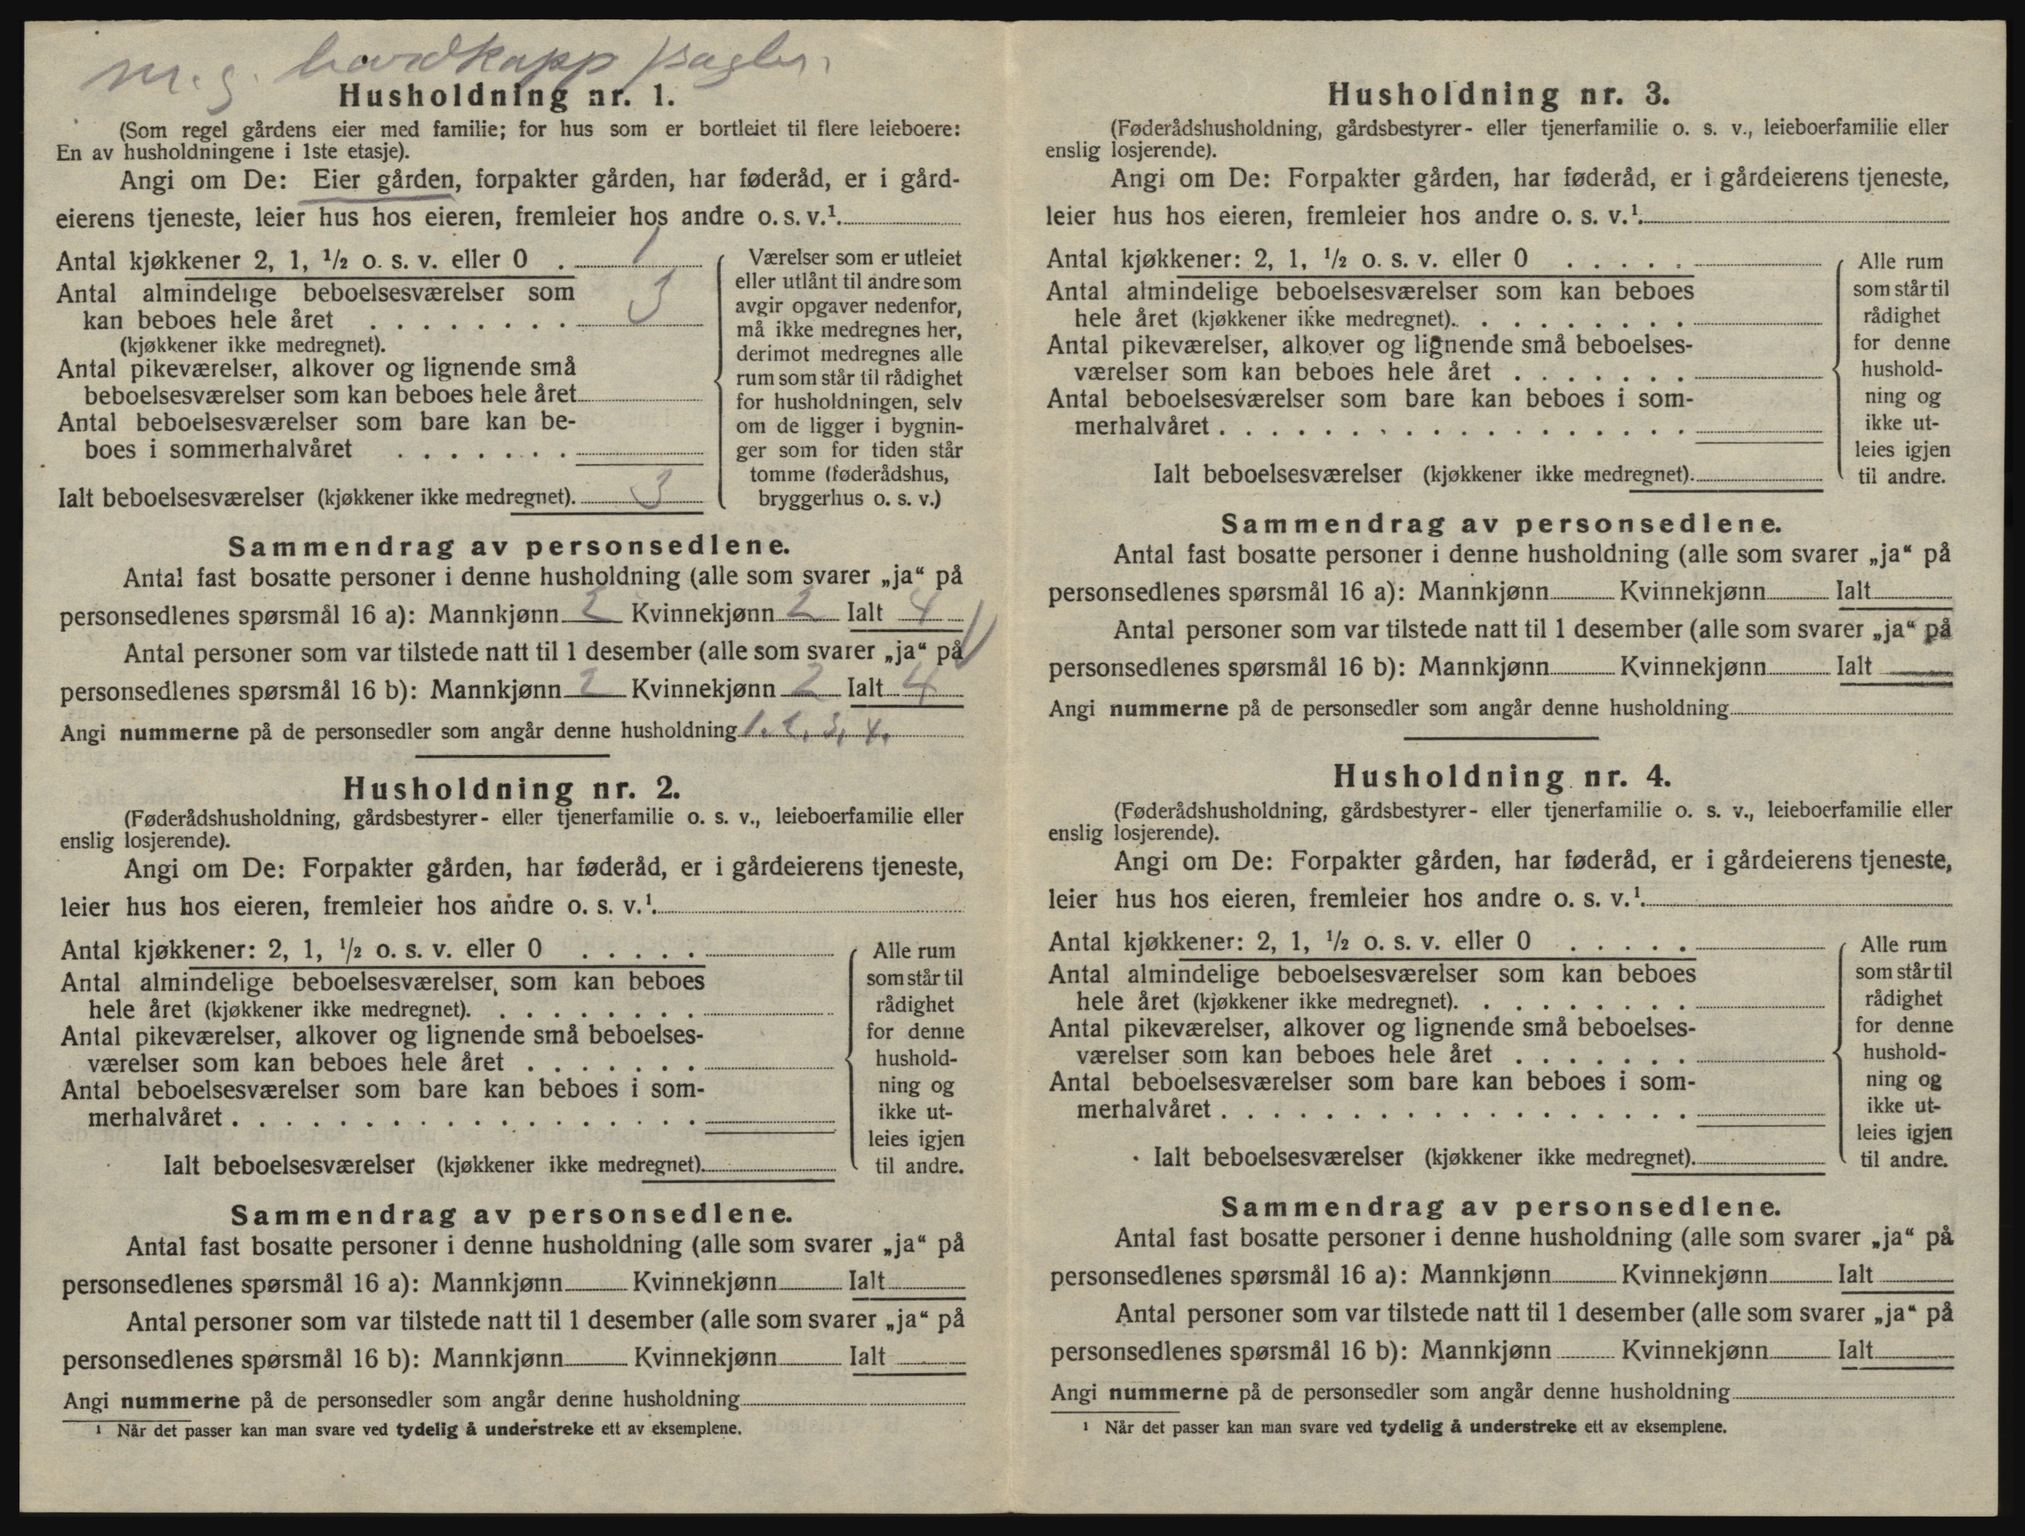 m. g.
Husholdning nr. 1.
(Som regel gårdens eier med familie; for hus som er bortleiet til flere leieboere:
En av husholdningene i 1ste etasje).
Angi om De: Eier gården, forpakter gården, har føderåd, er i gård-
eierens tjeneste, leier hus hos eieren, fremleier hos andre o. s. v.¹.
Antal kjøkkener 2, 1, ½ o. s. v. eller 0 . 1
Antal almindelige beboelsesværelser som
kan beboes hele året . . . . . . . . 3
(kjøkkener ikke medregnet).
Antal pikeværelser, alkover og lignende små
beboelsesværelser som kan beboes hele året
Antal beboelsesværelser som bare kan be-
boes i sommerhalvåret . . . . . . .
Ialt beboelsesværelser (kjøkkener ikke medregnet). 3
Værelser som er utleiet
eller utlånt til andre som
avgir opgaver nedenfor,
må ikke medregnes her,
derimot medregnes alle
rum som står til rådighet
for husholdningen, selv
om de ligger i bygnin-
ger som for tiden står
tomme (føderådshus,
bryggerhus o. s. v.)
Sammendrag av personsedlene.
Antal fast bosatte personer i denne husholdning (alle som svarer „ja“ på
personsedlenes spørsmål 16 a): Mannkjønn 2 Kvinnekjønn 2 Ialt 4
Antal personer som var tilstede natt til 1 desember (alle som svarer „ja“ på
personsedlenes spørsmål 16 b): Mannkjønn 2 Kvinnekjønn 2 Ialt 4
Angi nummerne på de personsedler som angår denne husholdning 1. 2. 3. 4.
Husholdning nr. 2.
(Føderådshusholdning, gårdsbestyrer- eller tjenerfamilie o. s. v., leieboerfamilie eller
enslig losjerende).
Angi om De: Forpakter gården, har føderåd, er i gårdeierens tjeneste,
leier hus hos eieren, fremleier hos andre o. s. v.¹.
Antal kjøkkener: 2, 1, ½ o. s. v. eller 0 . . . . .
Antal almindelige beboelsesværelser som kan beboes
hele året (kjøkkener ikke medregnet). . . . . . . . .
Antal pikeværelser, alkover og lignende små beboelses-
værelser som kan beboes hele året . . . . . . .
Antal beboelsesværelser som bare kan beboes i som-
merhalvåret . . . . . . . . . . . . . . . . . .
Ialt beboelsesværelser (kjøkkener ikke medregnet).
Alle rum
som står til
rådighet
for denne
hushold-
ning og
ikke ut-
leies igjen
til andre.
Sammendrag av personsedlene.
Antal fast bosatte personer i denne husholdning (alle som svarer „ja“ på
personsedlenes spørsmål 16 a): Mannkjønn Kvinnekjønn Ialt
Antal personer som var tilstede natt til 1 desember (alle som svarer „ja“ på
personsedlenes spørsmål 16 b): Mannkjønn Kvinnekjønn Ialt
Angi nummerne på de personsedler som angår denne husholdning
¹ Når det passer kan man svare ved tydelig å understreke ett av eksemplene.
Husholdning nr. 3.
(Føderådshusholdning, gårdsbestyrer- eller tjenerfamilie o. s. v., leieboerfamilie eller
enslig losjerende).
Angi om De: Forpakter gården, har føderåd, er i gårdeierens tjeneste,
leier hus hos eieren, fremleier hos andre o. s. v.¹.
Antal kjøkkener: 2, 1, ½ o. s. v. eller 0 . . . . .
Antal almindelige beboelsesværelser som kan beboes
hele året (kjøkkener ikke medregnet). . . . . . . . .
Antal pikeværelser, alkover og lignende små beboelses-
værelser som kan beboes hele året . . . . . . .
Antal beboelsesværelser som bare kan beboes i som-
merhalvåret . . . . . . . . . . . . . . . . . .
Ialt beboelsesværelser (kjøkkener ikke medregnet).
Alle rum
som står til
rådighet
for denne
hushold-
ning og
ikke ut-
leies igjen
til andre.
Sammendrag av personsedlene.
Antal fast bosatte personer i denne husholdning (alle som svarer „ja“ på
personsedlenes spørsmål 16 a): Mannkjønn Kvinnekjønn Ialt
Antal personer som var tilstede natt til 1 desember (alle som svarer „ja“ på
personsedlenes spørsmål 16 b): Mannkjønn Kvinnekjønn Ialt
Angi nummerne på de personsedler som angår denne husholdning
Husholdning nr. 4.
(Føderådshusholdning, gårdsbestyrer- eller tjenerfamilie o. s. v., leieboerfamilie eller
enslig losjerende).
Angi om De: Forpakter gården, har føderåd, er i gårdeierens tjeneste,
leier hus hos eieren, fremleier hos andre o. s. v.¹.
Antal kjøkkener: 2, 1, ½ o. s. v. eller 0 . . . . .
Antal almindelige beboelsesværelser som kan beboes
hele året (kjøkkener ikke medregnet). . . . . . . . .
Antal pikeværelser, alkover og lignende små beboelses-
værelser som kan beboes hele året . . . . . . .
Antal beboelsesværelser som bare kan beboes i som-
merhalvåret . . . . . . . . . . . . . . . . . .
Ialt beboelsesværelser (kjøkkener ikke medregnet).
Alle rum
som står til
rådighet
for denne
hushold-
ning og
ikke ut-
leies igjen
til andre.
Sammendrag av personsedlene.
Antal fast bosatte personer i denne husholdning (alle som svarer „ja“ på
personsedlenes spørsmål 16 a): Mannkjønn Kvinnekjønn Ialt
Antal personer som var tilstede natt til 1 desember (alle som svarer „ja“ på
personsedlenes spørsmål 16 b): Mannkjønn Kvinnekjønn Ialt
Angi nummerne på de personsedler som angår denne husholdning
¹ Når det passer kan man svare ved tydelig å understreke ett av eksemplene.